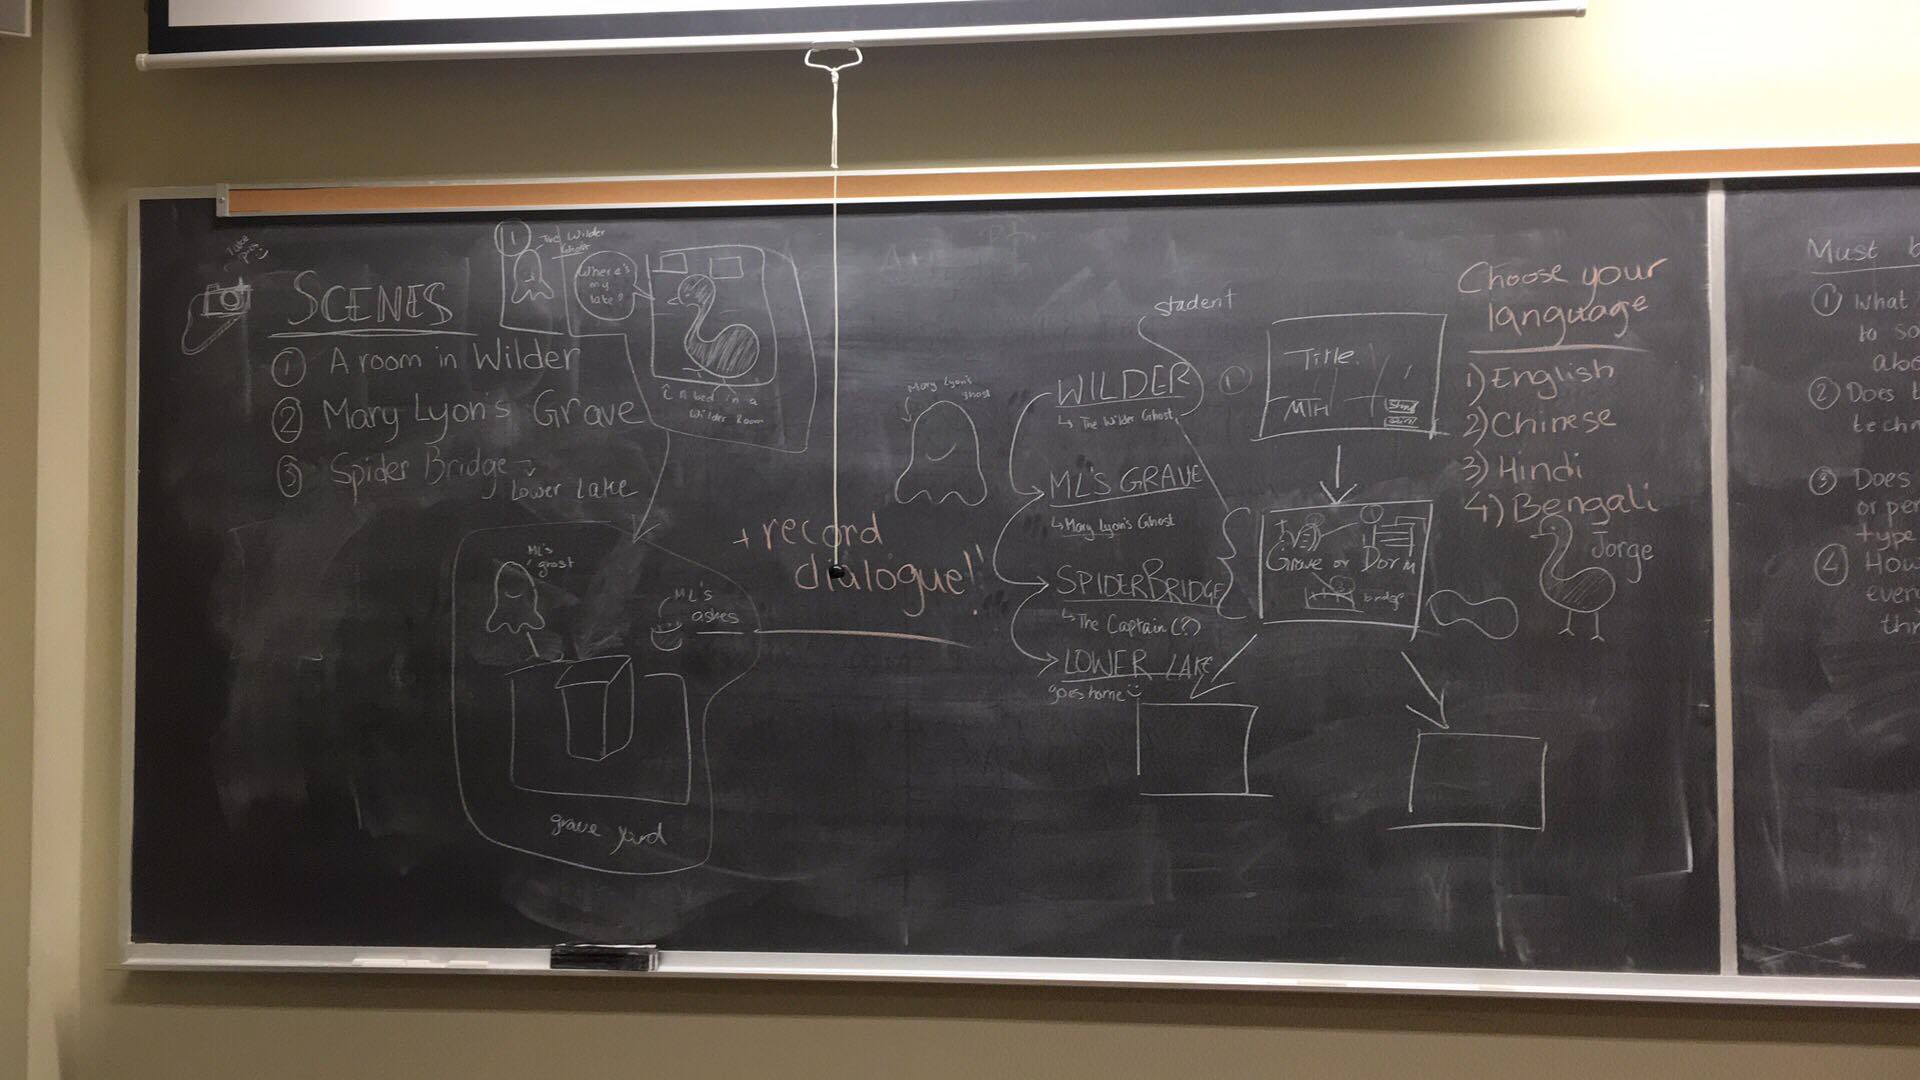 Take
pics
SCENES
① A room in Wilder
② Mary Lyon's Grave
③ Spider Bridge →
Lower Lake
①
The Wilder
Where's
my
lake?
in bed in a
Wilder Room
ML's
ghost
ML's
ashes
grave yard
+ record
dialogue!!
Mary Lyon's
ghost
student
WILDER
↳ The Wilder Ghost
ML'S GRAVE
↳ Mary Lyon's Ghost
SPIDERBRIDGE
↳ The Captain (?)
LOWER LAKE
goes home
①
Title
MTH
Grave or Dorm
bridge
Choose your
language
1) English
2) Chinese
3) Hindi
4) Bengali
Jorge
Must b
① What
to so
abo
② Does t
techn
③ Does
or per
type
④ How
even
thr